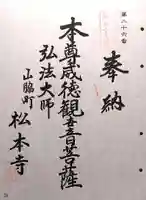 第二十六番
奉納
本尊威徳観音菩薩
弘法大師
山脇町
松本寺